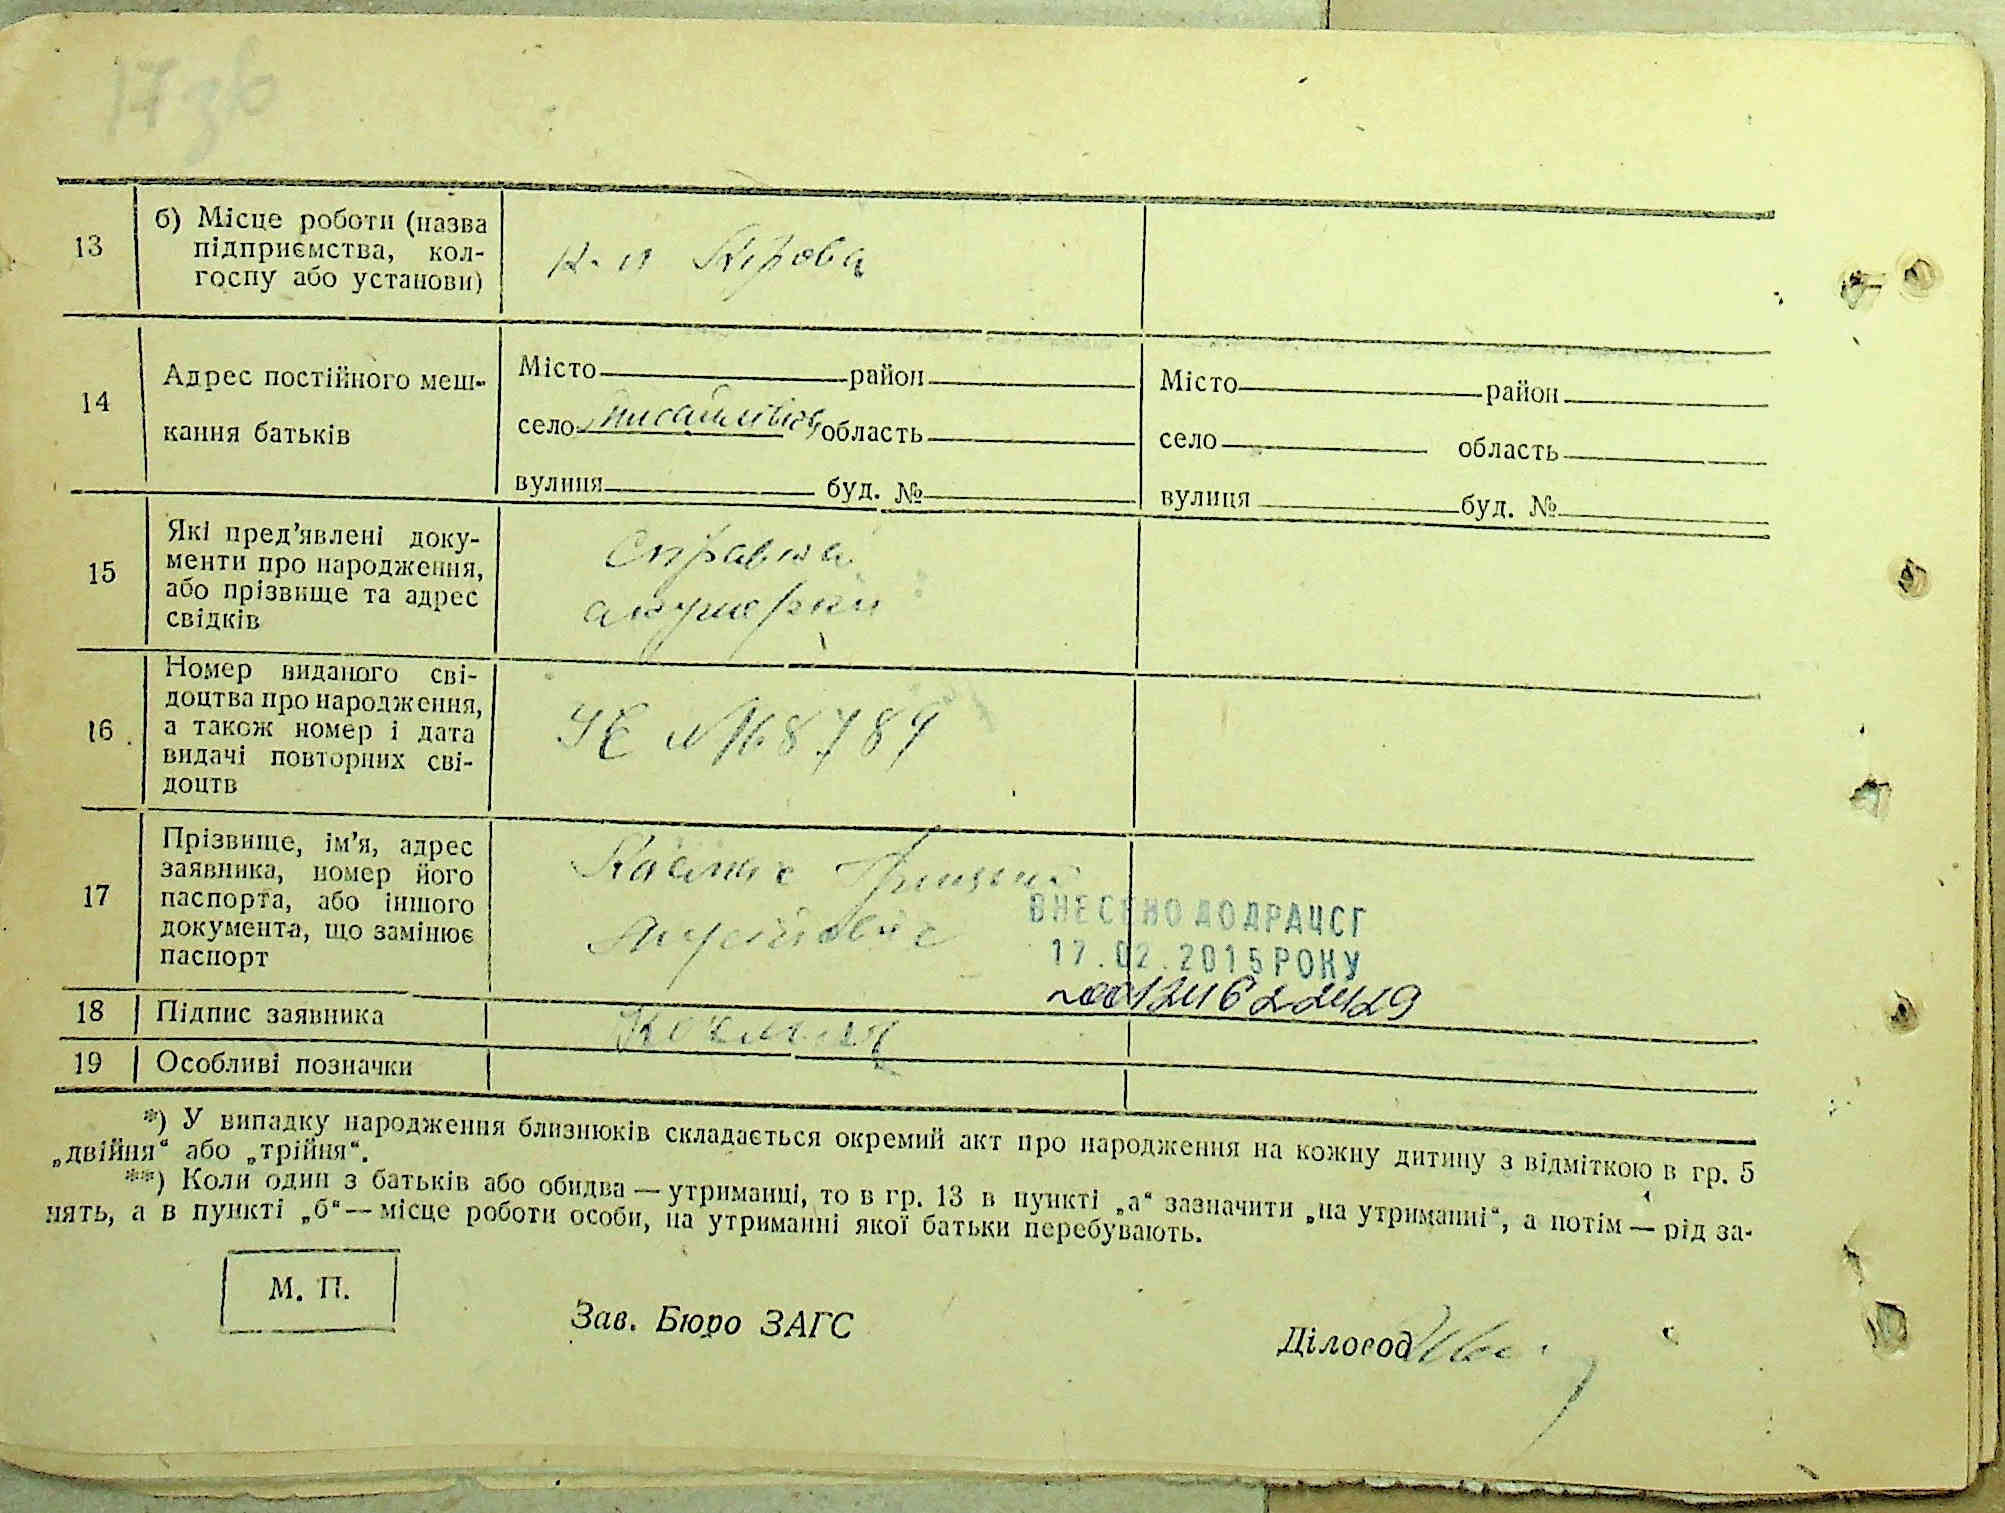 17 зв
13
б) Місце роботи (назва
підприємства, кол-
госпу або установи)
к-п Кірова
14
Адрес постійного меш-
кання батьків
Місто район
село область
вулиця буд. №
Місто район
село область
вулиця буд. №
15
Які пред’явлені доку-
менти про народження,
або прізвище та адрес
свідків
Справка
акушерки
16
Номер виданого сві-
доцтва про народження,
а також номер і дата
видачі повторних сві-
доцтв
№ 168789
17
Прізвище, ім’я, адрес
заявника, номер його
паспорта, або іншого
документа, що замінює
паспорт
ВНЕСЕНО ДО ДРАЦСГ
17.02.2015 РОКУ
18
Підпис заявника
19
Особливі позначки
*) У випадку народження близнюків складається окремий акт про народження на кожну дитину з відміткою в гр. 5
„двійня“ або „трійня“.
**) Коли один з батьків або обидва — утриманці, то в гр. 13 в пункті „а“ зазначити „на утриманні“, а потім — рід за-
нять, а в пункті „б“ — місце роботи особи, на утриманні якої батьки перебувають.
М. П.
Зав. Бюро ЗАГС
Діловод